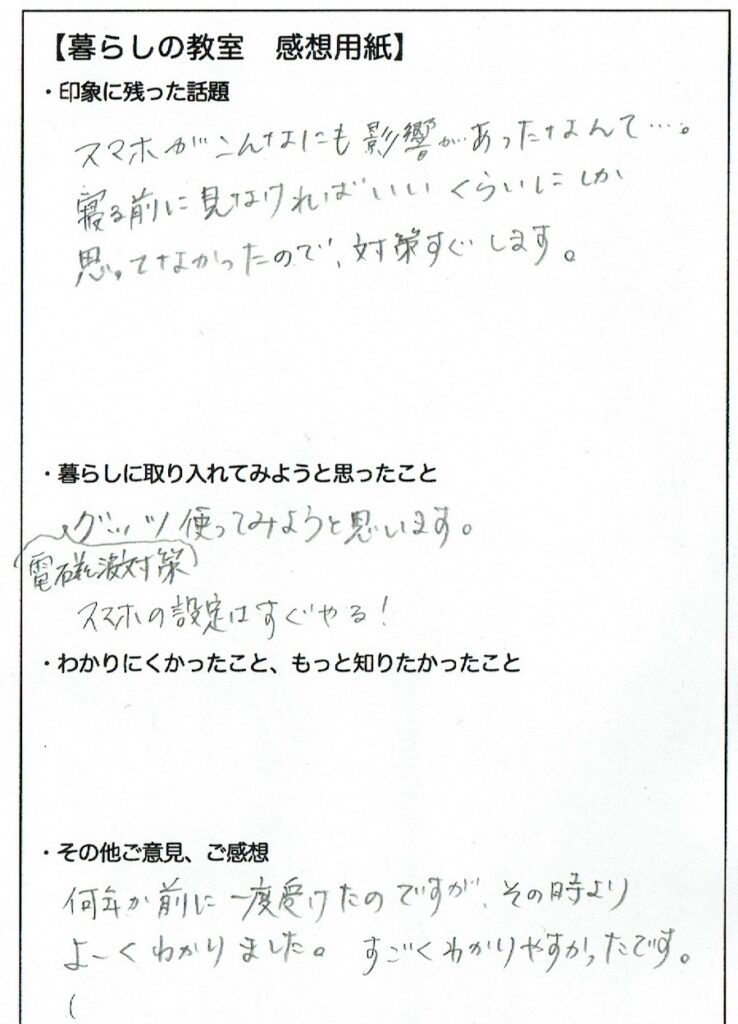 【暮らしの教室　感想用紙】
・印象に残った話題
スマホがこんなにも影響があったなんて…。
寝る前に見なければいいくらいにしか
思ってなかったので、対策すぐします。
・暮らしに取り入れてみようと思ったこと
グッツ使ってみようと思います。
電磁波対策
スマホの設定はすぐやる!
・わかりにくかったこと、もっと知りたかったこと
・その他ご意見、ご感想
何年か前に一度受けたのですが、その時より
よーくわかりました。すごくわかりやすかったです。
(